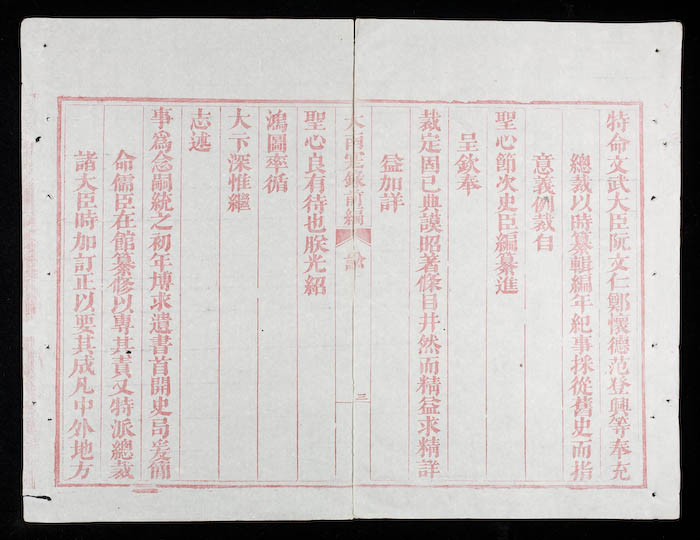 特命文武大臣阮文仁鄭懷德范登興等奉充
總裁以時纂輯編年紀事採從舊史而指
意義例裁自
聖心節次史臣編纂進
呈欽奉
裁定固已典謨昭著條目井然而精益求精詳
益加詳
大南寔錄前編 諭 三
聖心良有待也朕光紹
鴻圖率循
大下深惟繼
志述
事爲念嗣統之初年博求遺書首開史局爰簡
命儒臣在館纂修以專其責又特派總裁
諸大臣時加訂正以要其成凡中外地方